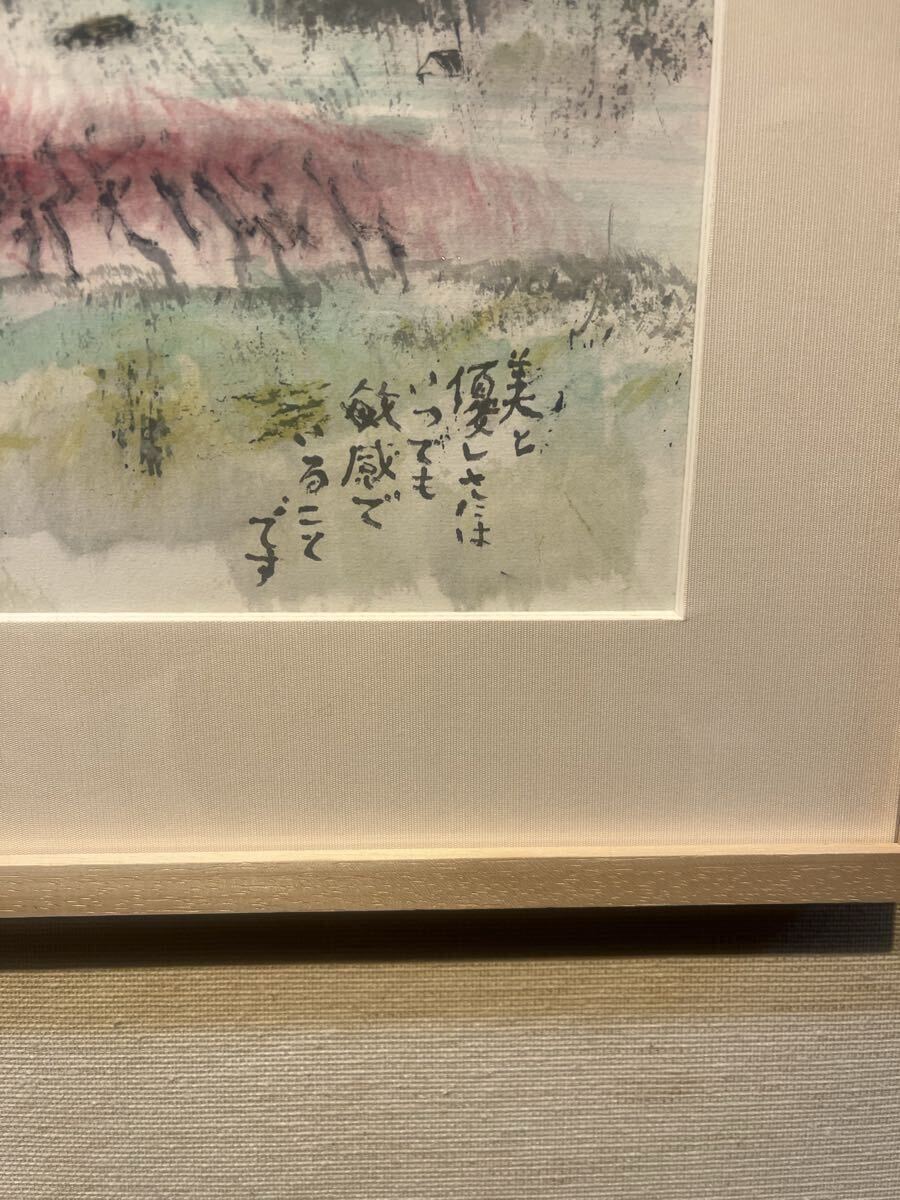 美と
優しさには
いつでも
敏感で
いること
です